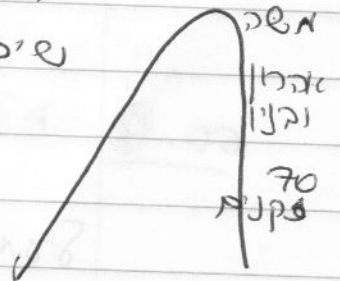 משה
אהרון
ובניו
70
זקנים